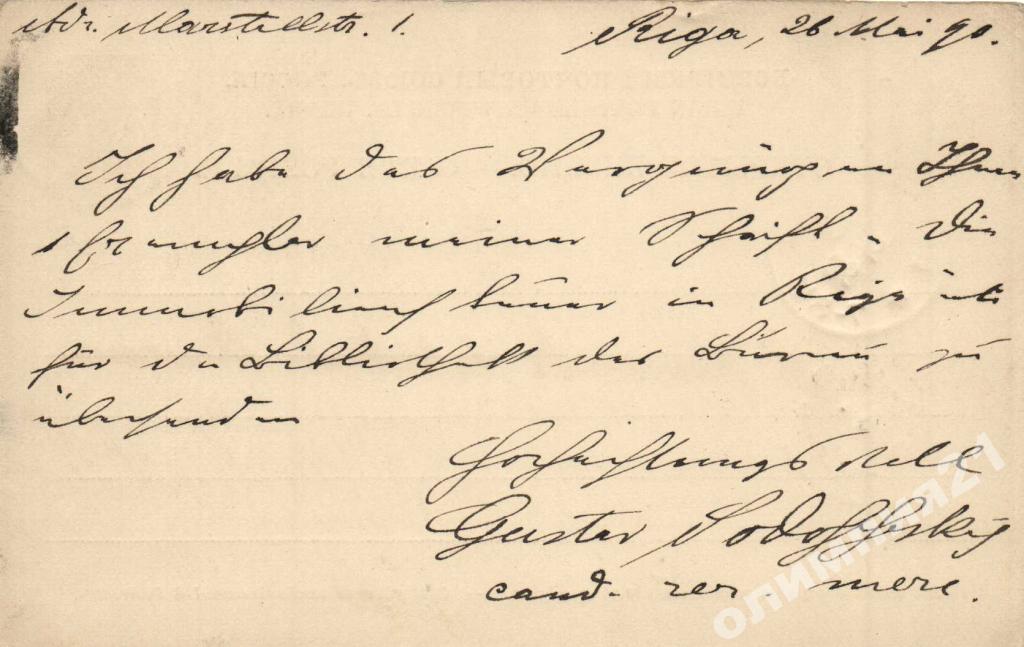 Adr. Marstallstr. 1.
Riga, 26 Mai 90.
Ich habe das Vergnügen Ihnen
1 Exemplar meiner Schrift „Die
Immobiliensteuer in Riga" etc
für die Bibliothek des Büreau zu
übersenden
Hochachtungsvoll
Gustav Sodoffsky
cand. rer. merc.
олимпия21